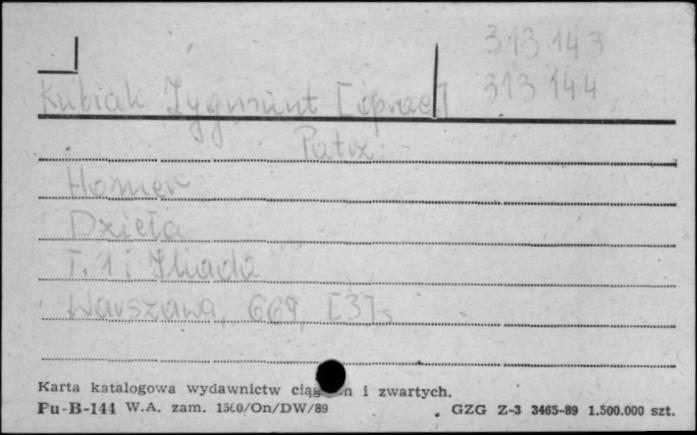 313 143
Kubiak Zygmunt [oprac]
313 144
Patrz:
Homer
Dzieła
T. 1 : Iliada
Warszawa, 669, [3] s
Karta katalogowa wydawnictw i zwartych.
Pu-B-144 W.A. zam. 1560/On/DW/89
GZG Z-3 3465-89 1.500.000 szt.